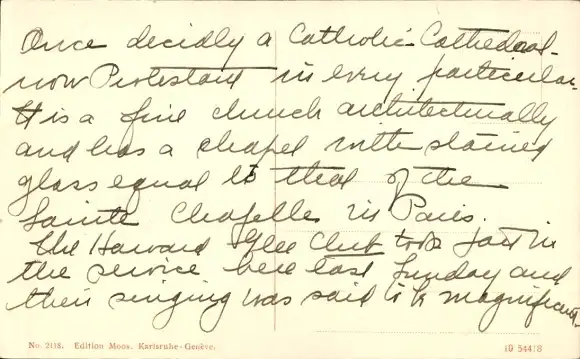 Once decidly a Catholic Cathedral -
now Protestant in every particular.
It is a fine church architecturally
and has a chapel with stained
glass equal to that of the
Sainte Chapelle in Paris.
The Harvard Glee Club took part in
the service here last Sunday and
their singing was said to be magnificent.
No. 2118. Edition Moos. Karlsruhe-Genève.
10 54418